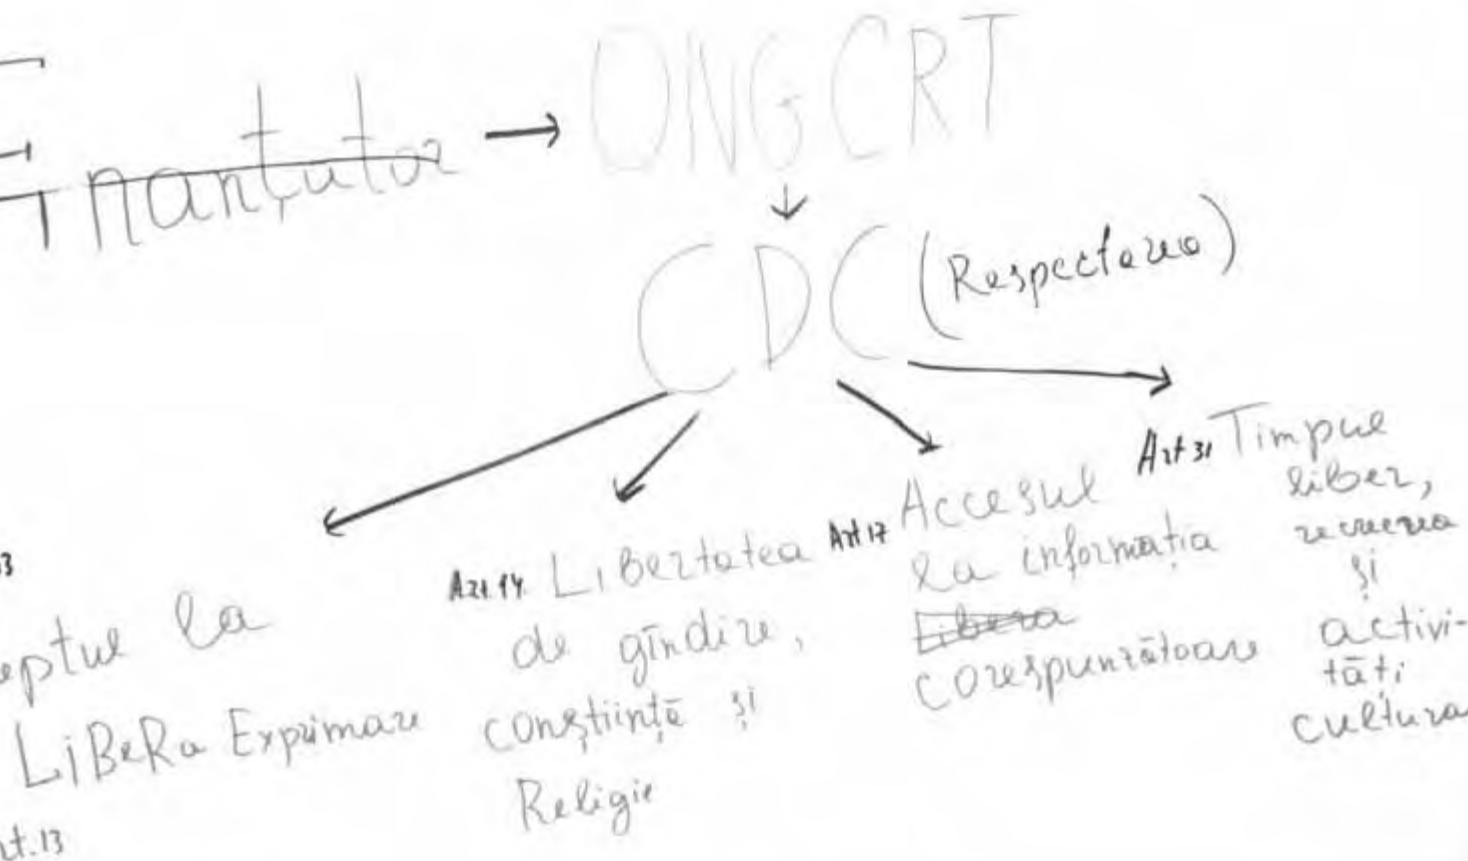 nanțutor → ONG CRT
↓
CDC (Respectarea)
Dreptul la
LiBeRa Exprimare
Art. 13
Art. 14. LiBertatea
de gîndire,
conștiință și
Religie
Art 17 Accesul
la informația
Libera
corespunzătoare
Art 31 Timpul
liber,
recreerea
și
activi-
tăți
cultura